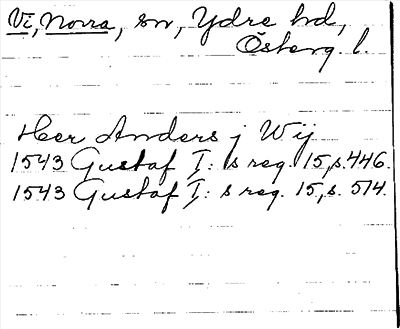 Vi, Norra, sn, Ydre hd,
Österg. l.
Herr Anders j Wij
1543 Gustaf I: s reg. 15, s. 446.
1543 Gustaf I: s reg. 15, s. 514.